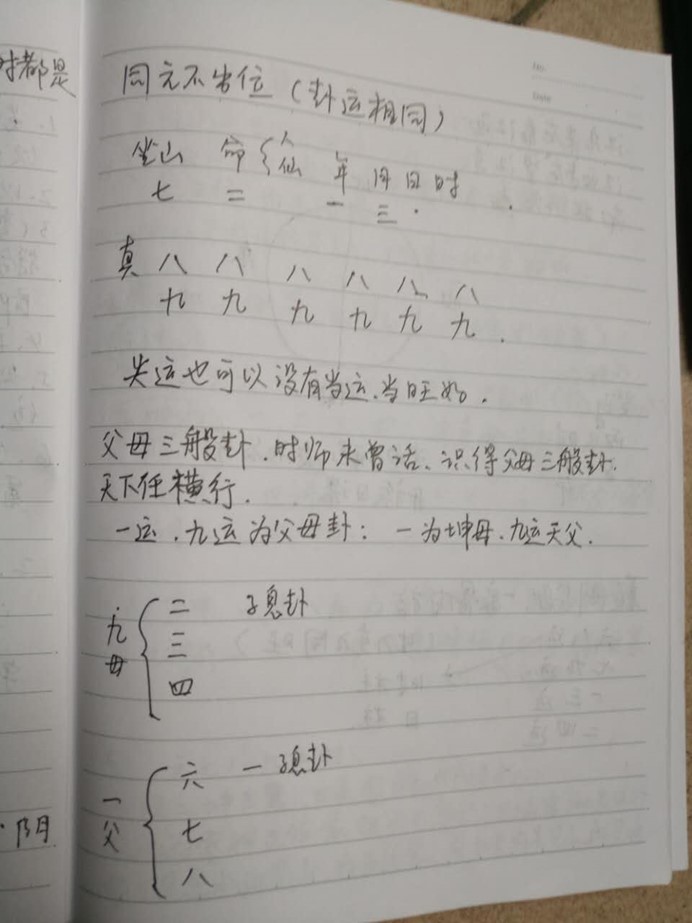 时都是
同元不出位（卦运相同）
坐山 命{人仙 年月日时
七 二 一 三
真 八 八 八 八 八 八
九 九 九 九 九 九
失运也可以没有当运、当旺好.
父母三般卦.时师未曾话、识得父母三般卦.
天下任横行.
一运.九运为父母卦：一为坤母.九运天父.
九母{二 子息卦
三
四
一父{六 一 子息卦
七
八
阴